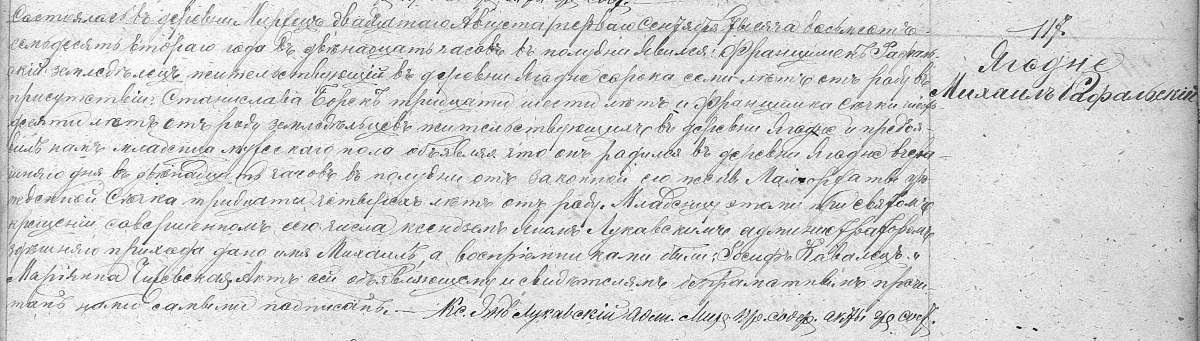 Состоялось въ деревни Мирецъ двадцатаго Августа перваго Сентября тысяча восемьсотъ
семьдесятъ втораго года въ двѣнадцать часовъ въ полудни Явился: Францишекъ Рафаль-
скій земледѣлецъ жительствующій въ деревни Ягодне сорока семи лѣтъ отъ роду въ
присутствіи: Станислава Борекъ тридцати шести лѣтъ и Францишка Сючки шесть-
десяти лѣтъ отъ роду земледѣльцевъ жительствующихъ въ деревни Ягодне и предъя-
вилъ намъ младенца мужескаго пола объявляя что онъ радился въ деревни Ягодне вчера-
шняго дня въ двѣнадцать часовъ въ полудни отъ законной его жены Малгоржаты уро-
жденной Сючка тридцати четырехъ лѣтъ отъ роду. Младенцу этому при святомъ
крещеніи совершенномъ сего числа ксендзомъ Яномъ Лукавскимъ администраторомъ
здѣшняго прихода дано имя Михаилъ, а воспріемниками были: Іосифъ Ковалецъ и
Маріянна Актъ сей объявляющему и свидѣтелямъ неграмотнымъ прочи-
танъ нами самыми подписанъ.— Кс. Янъ Лукавскій адм. Мир. пр. содер. акты гр. сост.
117.
Ягодне
Михаилъ Рафальскій